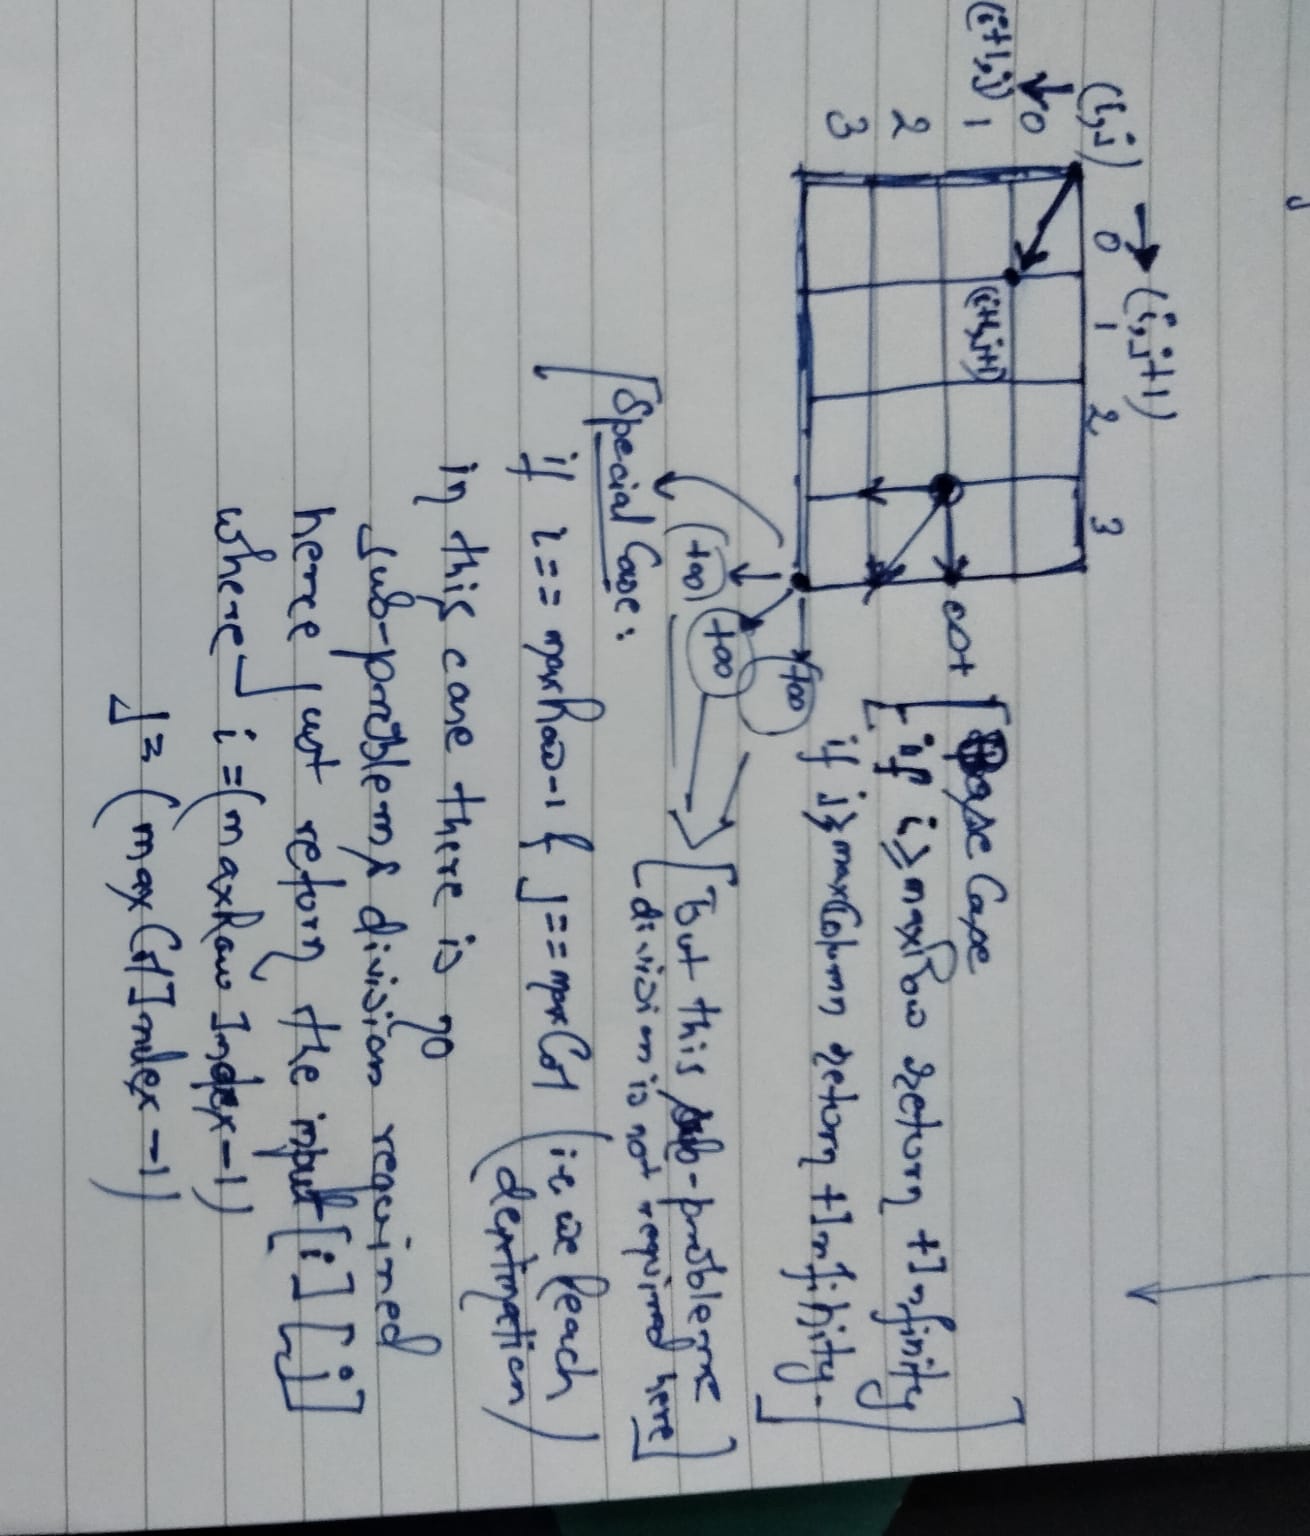 (i,j) → (i,j+1)
0 1 2 3
↓ 0
(i+1,j) 1
(i+1,j+1)
2
3
cost
[Base Case
if i ≥ maxRow return +Infinity
if j ≥ maxColumn return +Infinity.]
+∞
+∞
(+∞)
[But this sub-problems
division is not required here]
[Special Case:
if i == maxRow-1 & j == maxCol (i.e we Reach
destination)
in this case there is no
sub-problems division required
hence just return the input[i][j]
where] i = (maxRow Index-1)
j = (maxCol Index-1)